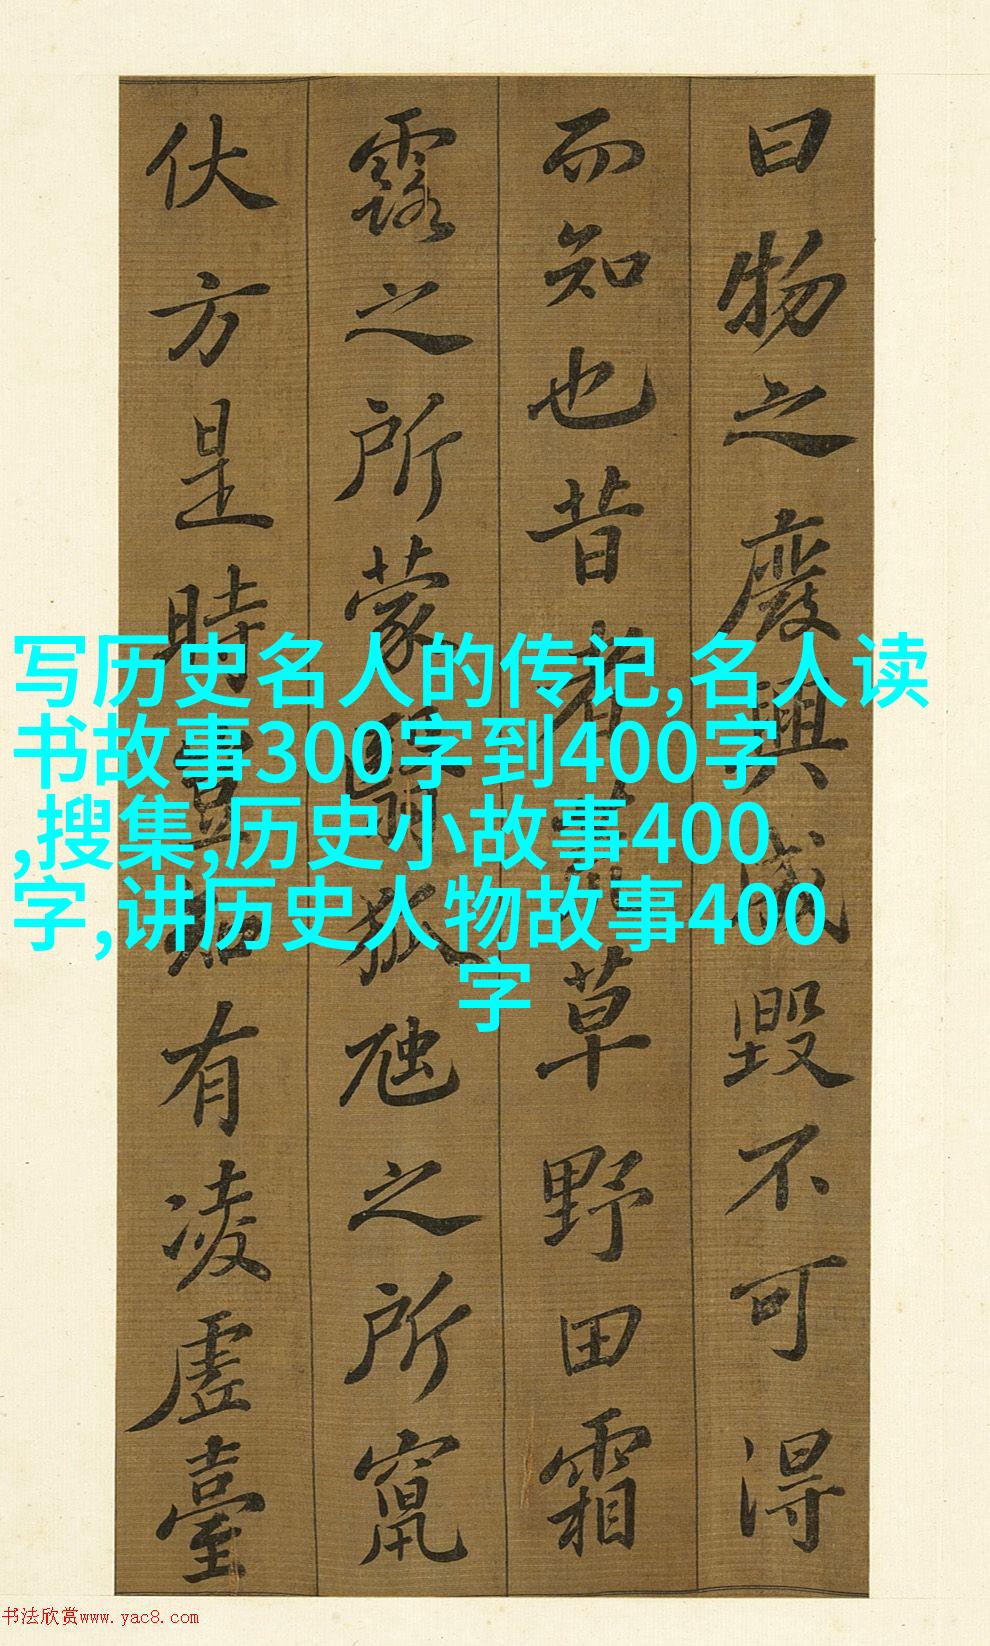 曰物之廢興成毀不可得
而知也昔者荒草野田霜
露之所蒙翳狐虺之所竄
伏方是時豈知有凌虛臺
写历史名人的传记,名人读
书故事300字到400字
,搜集,历史小故事400
字,讲历史人物故事400
字
书法欣赏www.yac8.com